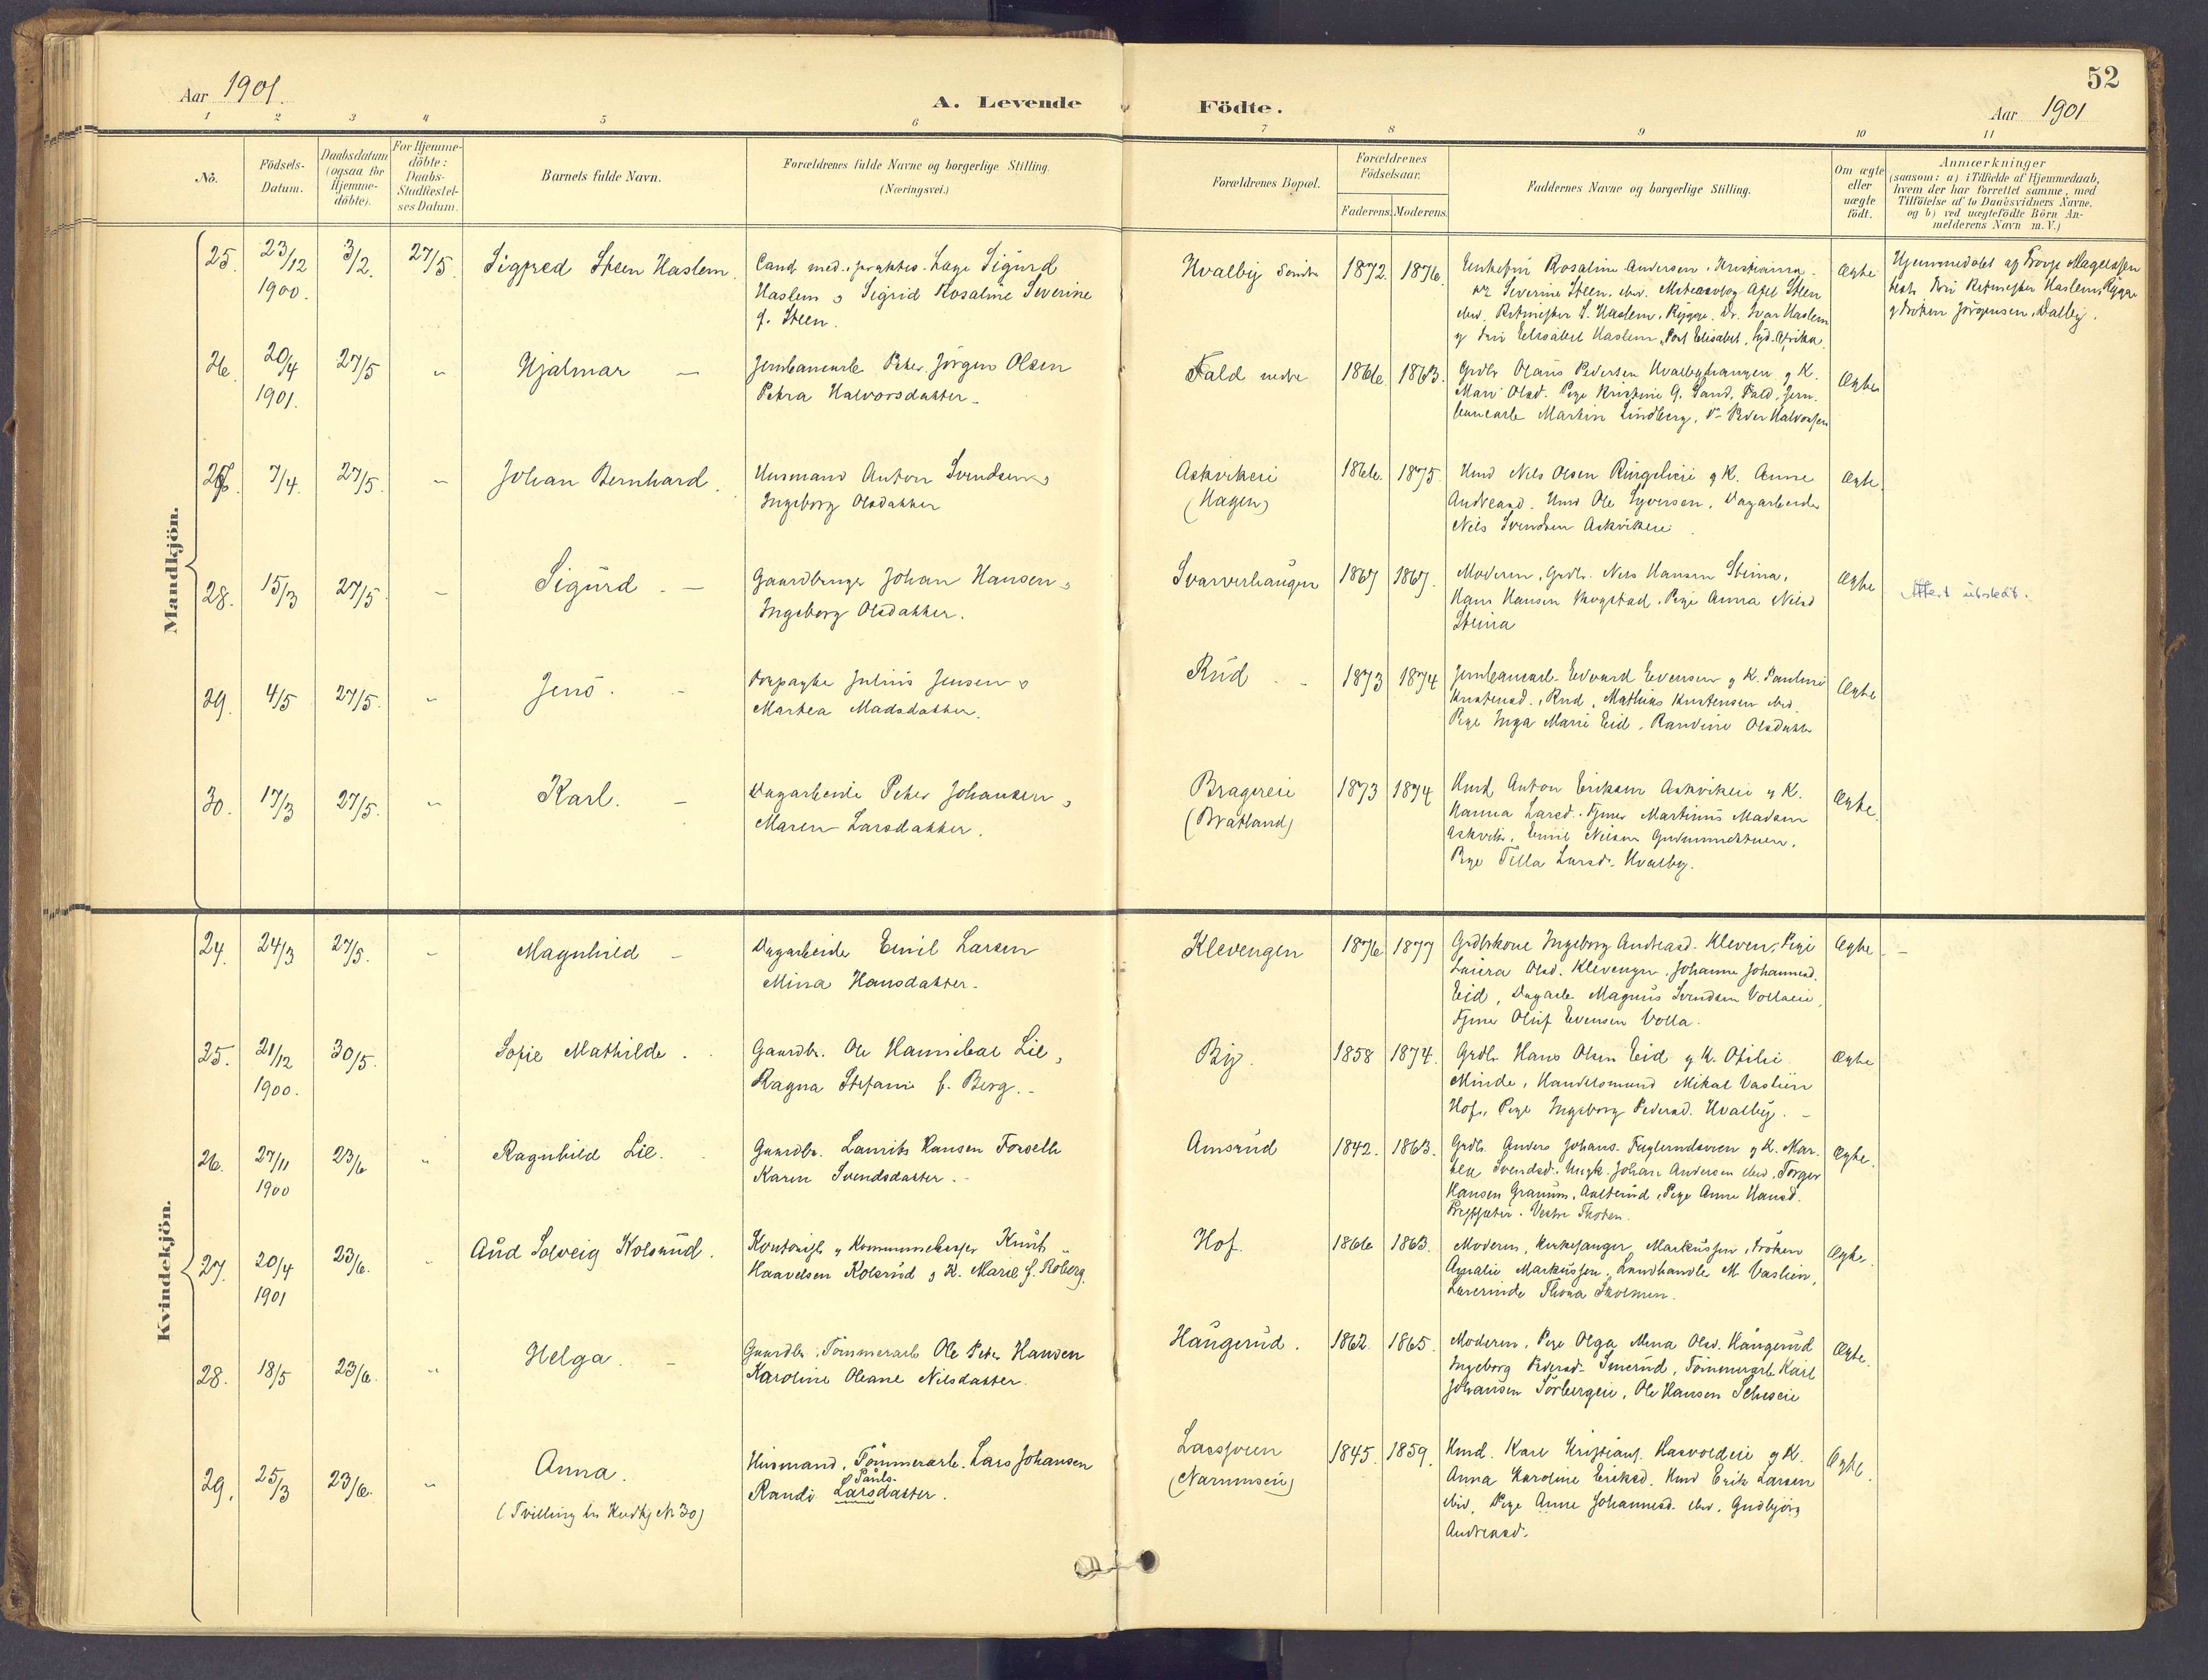 52
Aar 1901.
A. Levende Födte.
Aar 1901
1 2 3 4 5 6 7 8 9 10 11
No.
Födsels-
Datum.
Daabsdatum
(ogsaa för
Hjemme-
döbte).
For Hjemme-
döbte:
Daabs-
Stadfæstel-
ses Datum.
Barnets fulde Navn.
Forældrenes fulde Navne og borgerlige Stilling.
(Næringsvei.)
Forældrenes Bopæl.
Forældrenes
Födselsaar.
Faderens. Moderens.
Faddernes Navne og borgerlige Stilling.
Om ægte
eller
uægte
födt.
Anmærkninger
(saasom: a) i Tilfælde af Hjemmedaab,
hvem der har forrettet samme, med
Tilföielse af to Daabsvidners Navne,
og b) ved uægtefödte Börn An-
melderens Navn m.V.)
Mandkjön.
25. 23/12 1900. 3/2. 27/5. Sigfred Steen Haslem.
Cand. med., praktis. Læge Sigurd
Haslem o Sigrid Rosaline Severine
f. Steen.
Hvalby söndre 1872. 1876.
Enkefru Rosaline Andersen, Kristiania.
Severine Steen, ibid. Axel Steen
ibid. Ritmester S. Haslem, Rygge. Dr. Ivar Haslem
og Fru Elisabet Haslem, Port Elisabet, Syd-Afrika.
Ægte
Hjemmedöbt af Provst Magelssen
test. Fru Ritmester Haslem, Rygge
og Fröken Jörgensen, Dalby.
26. 20/4 1901. 27/5 „ Hjalmar —
Jernbanearb. Peter Jörgen Olsen
Petra Halvorsdatter.
Fald nedre 1866 1863.
Grdbr. Olaus Pedersen Hvalbyhaugen og K.
Mari Olsd. Pige Kristine G. Sand, Fald, Jern-
banearb. Martin Lindberg, Do Peder Halvorsen
Ægte
27. 7/4. 27/5. „ Johan Bernhard.
Husmand Anton Svendsen o
Ingeborg Olsdatter
Askvikeie
(Hagen)
1866. 1875.
Hmd Nils Olsen Ringelieie og K. Anne
Andreasd. Hmd Ole Syversen, Dagarbeider
Nils Svendsen Askvikeie.
Ægte.
28. 15/3 27/5. „ Sigurd. —
Gaardbruger Johan Hansen o
Ingeborg Olsdatter.
Svarverhaugen 1867 1867.
Moderen, Grdbr. Nils Hansen Steina,
Hans Hansen Skogstad, Pige Anna Nilsd
Steina
Ægte
Attest utstedt.
29. 4/5 27/5. „ Jens. —
Forpagter Julius Jensen o
Martea Madsdatter.
Rud 1873 1874
Jernbanearb. Edvard Evensen og K. Pauline
Kristensd., Rud, Mathias Kristensen ibid.
Pige Inga Marie Eid, Randine Olsdatter
Ægte
30. 17/3 27/5. „ Karl. —
Dagarbeider Peter Johansen o
Maren Larsdatter.
Bragereie
(Bratland)
1873 1874
Hmd. Anton Eriksen Askvikeie og K.
Hanna Larsd. Tjener Martinus Madsen
Askvik, Emil Nilsen
Pige Tilla Larsd. Hvalby.
Ægte.
Kvindekjön.
24. 24/3 27/5. „ Magnhild —
Dagarbeider Emil Larsen
Mina Hansdatter.
Klevengen 1876 1877
Grdbrkone Ingeborg Andreasd. Kleven, Pige
Laura Olsd. Klevengen, Johanne Johannesd.
Eid, Dagarb. Magnus Svendsen Vollaeie,
Tjener Oluf Evensen Volla.
Ægte. —
25. 21/12 1900. 30/5. Sofie Mathilde.
Gaardbr. Ole Hannibal Lie o
Ragna Stefanie f. Berg.
By. 1858 1874.
Grdbr. Hans Olsen Eid og K. Otilie
Minde, Handelsmand Mikal Vaslien
Hof, Pige Ingeborg Pedersd. Hvalby. —
Ægte
26. 27/11 1900 23/6 „ Ragnhild Lie.
Gaardbr. Laurits Hansen Forseth
Karen Svendsdatter.
Amsrud 1842. 1863.
Grdbr. Anders Johans. Fuglerudsveen og K. Mar-
tea Svendsd. Ungk. Johan Andersen ibid, Torger
Hansen Granum, Aalterud, Pige Anne Hansd.
Vestre Thoten.
Ægte.
27. 20/4 1901 23/6. „ Aud Solveig Kolsrud.
Kontorist og Kommunekasser Knut
Haavelsen Kolsrud o K. Marie f. Röberg.
Hof. 1866 1863.
Moderen, Kirkesanger Markussen, Fröken
Amalie Markussen, Landhandler M. Vaslien,
Lærerinde Thora Skolmen.
Ægte.
28. 18/5 23/6. „ Helga. —
Gaardbr. Tömmerarb Ole Peter Hansen
Karoline Oleane Nilsdatter.
Haugerud. 1862. 1865.
Moderen, Pige Olga Mina Olsd. Haugerud
Ingeborg Pedersd. Smerud, Tömmerarb Karl
Johansen Sörbergeie, Ole Hansen
Ægte.
29. 25/3 23/6. „ Anna.
(Tvilling til Kvdkj No 30)
Husmand, Tömmerarb. Lars Johansen
Pauls-
Randi Larsdatter.
(Narumseie)
1845. 1859.
Hmd. Karl Kristians. Harvoldeie og K.
Anna Karoline Eriksd. Hmd Erik Larsen
ibid, Pige Anne Johannesd. ibid, Gudbjörg
Andreasd.
Ægte.